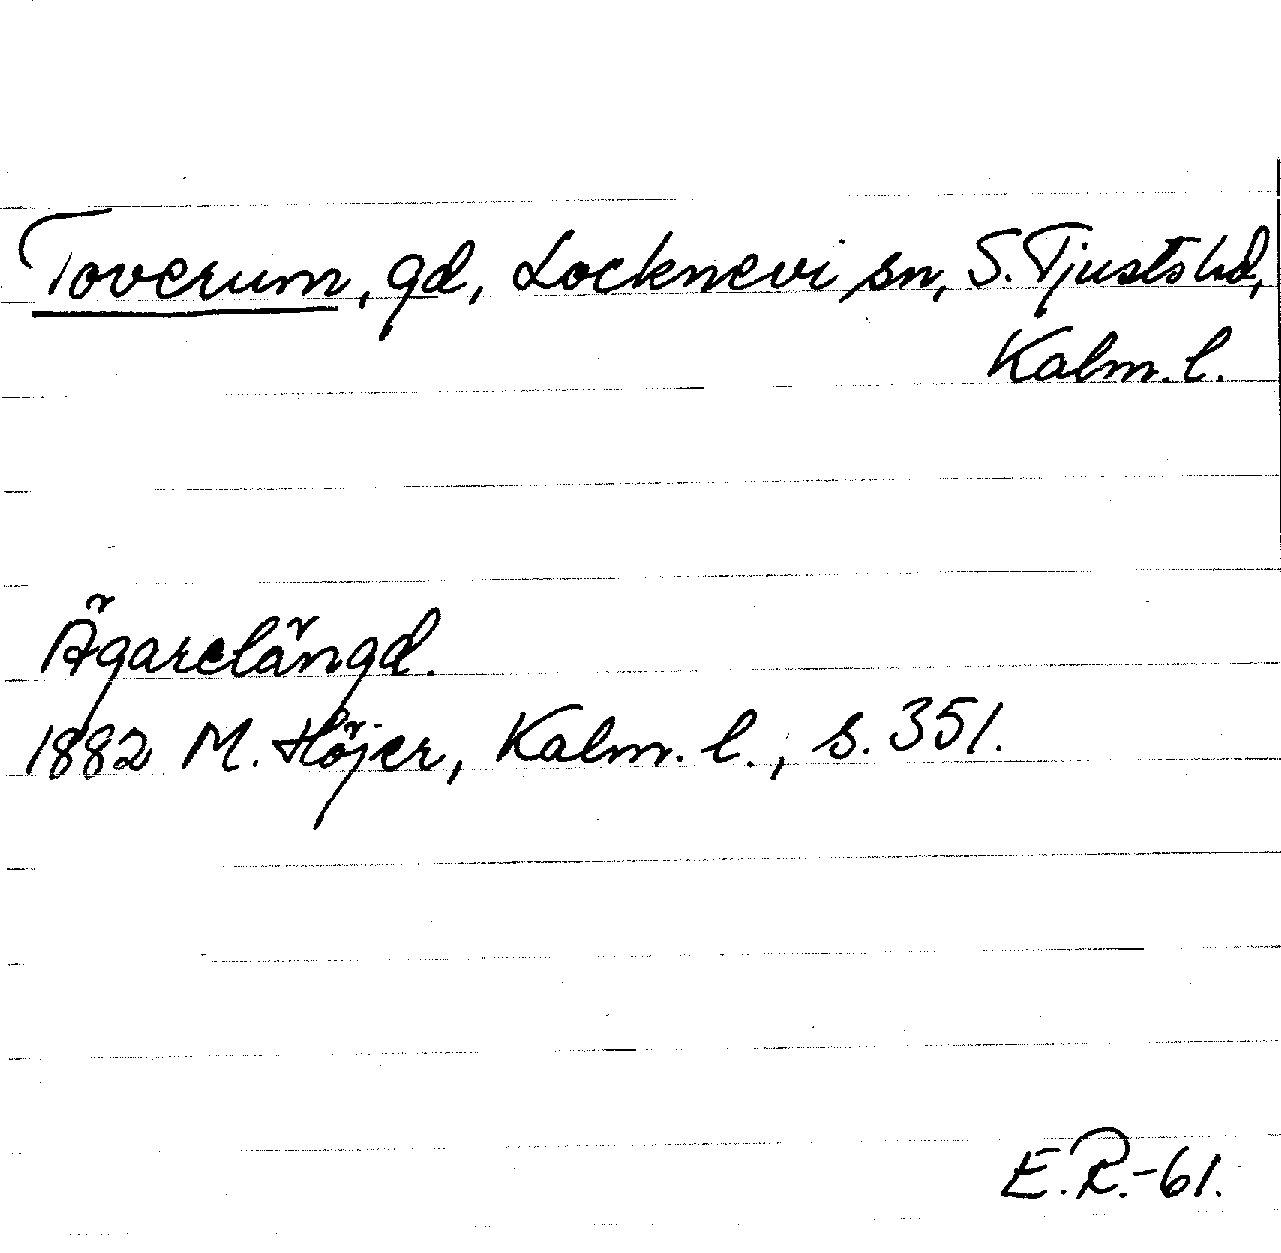 Toverum, gd, Locknevi sn, S. Tjusts hd,
Kalm. l.
Ägarelängd.
1882 M. Höjer, Kalm. l., s. 351.
E.R.-61.